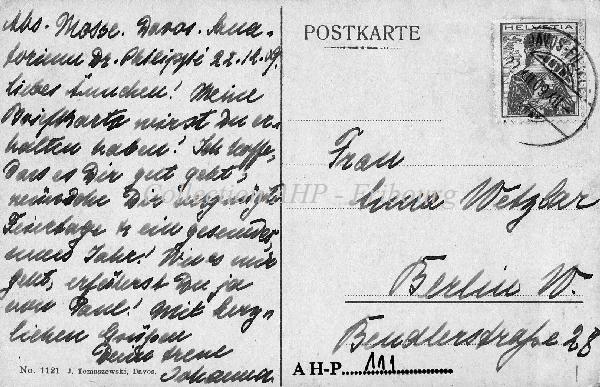 Abs. Mosse. Davos. Sana-
torium Dr. Philippi 22.12.09.
Liebes Ännchen! Meine
Briefkarte wirst Du er-
halten haben! Ich hoffe,
dass es Dir gut geht,
wünsche Dir vergnügte
Feiertage & ein gesundes,
neues Jahr! Wie es mir
geht, erfährst Du ja
von Paul! Mit herz-
lichen Grüßen
Deine treue
Johanna.
No. 1121 J. Tomaszewski, Davos.
POSTKARTE
HELVETIA
Frau
Anna Wetzlar
Berlin W.
Bendlerstraße 28
AH-P. 111
Collection AHP - Fribourg